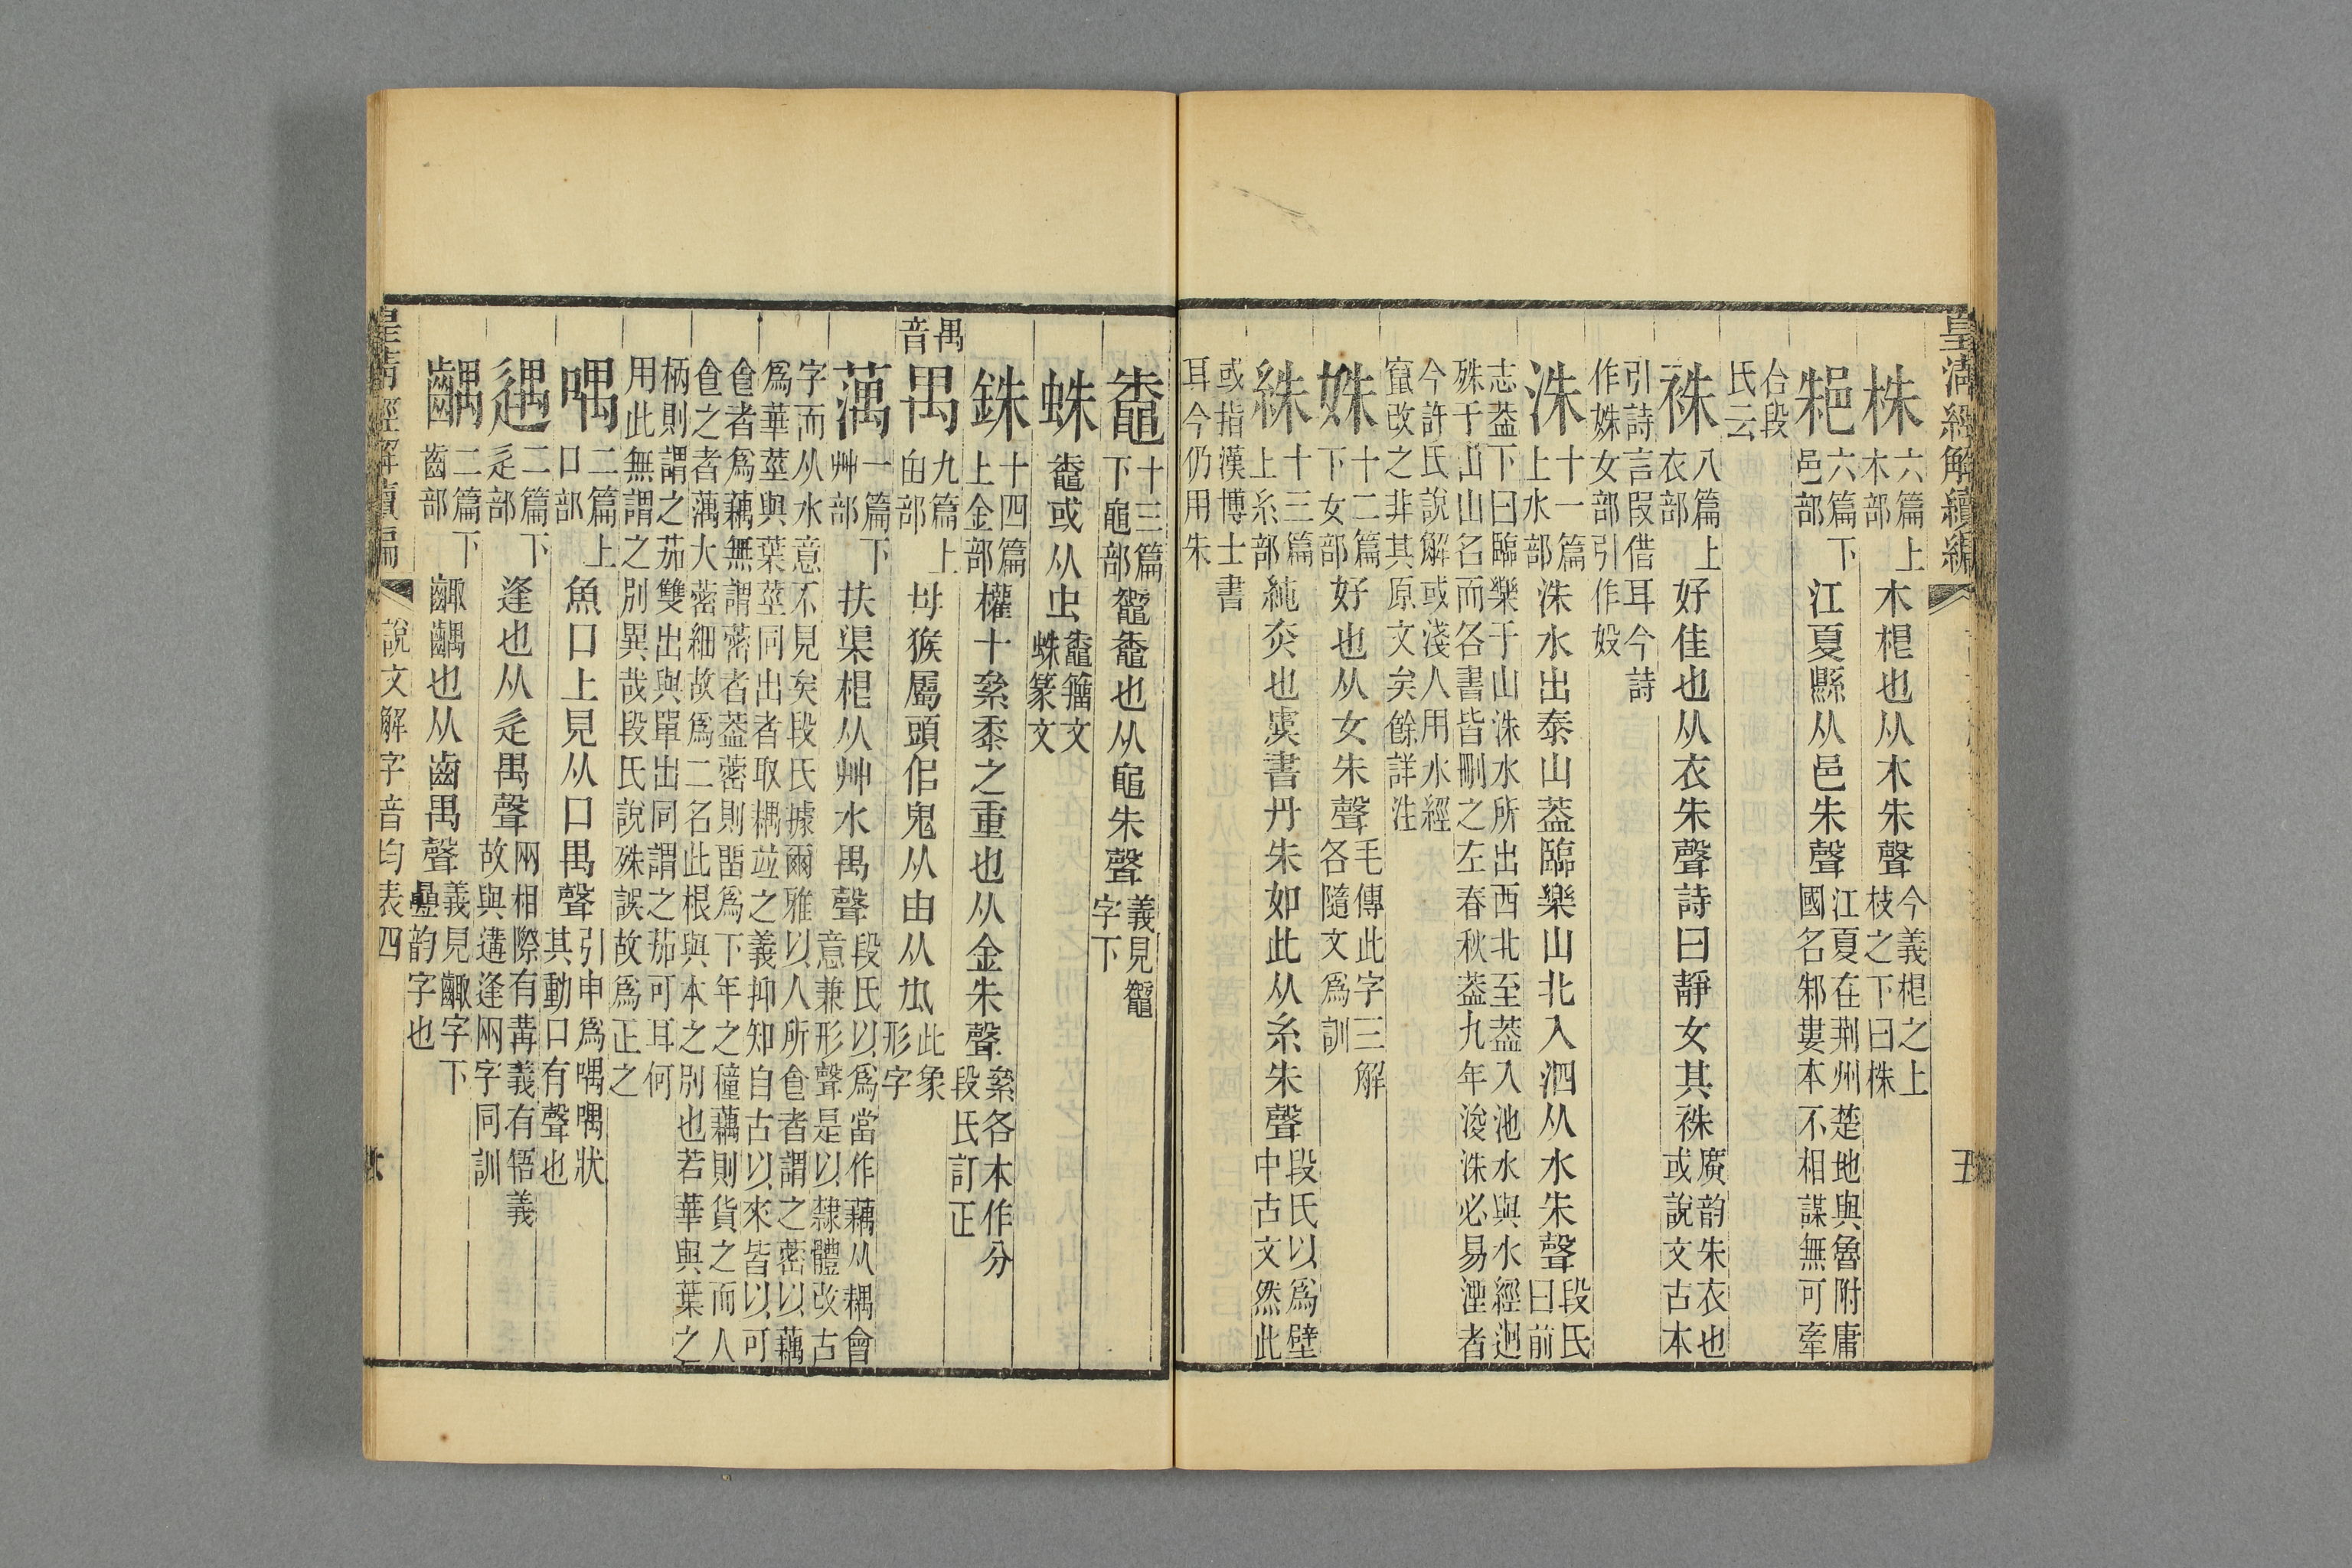 皇清經解續編
五
株六篇上木部木根也从木朱聲今義根之上枝之下曰株
邾六篇下邑部江夏縣从邑朱聲江夏在荆州楚地與魯附庸國名邾婁本不相謀無可牽
合段氏云
袾八篇上衣部好佳也从衣朱聲詩曰靜女其袾廣韵朱衣也或說文古本
引詩言叚借耳今詩作姝女部引作㚲
洙十一篇上水部洙水出泰山蓋臨樂山北入泗从水朱聲段氏曰前
志蓋下曰臨樂于山洙水所出西北至蓋入池水與水經迥殊于山山名而各書皆刪之左春秋莊九年浚洙必易湮者
今許氏說解或淺人用水經竄改之非其原文矣餘詳注
姝十二篇下女部好也从女朱聲毛傳此字三解各隨文爲訓
絑十三篇上糸部純赤也虞書丹朱如此从糸朱聲段氏以爲壁中古文然此
或指漢博士書耳今仍用朱
鼄十三篇下黽部䵹鼄也从黽朱聲義見䵹字下
蛛鼄或从虫鼄籒文蛛篆文
銖十四篇上金部權十絫黍之重也从金朱聲絫各本作分段氏訂正
禺音
禺九篇上甶部母猴屬頭佀鬼从甶从禸此象形字
蕅一篇下艸部扶渠根从艸水禺聲段氏以爲當作藕从耦會意兼形聲是以隸體改古
字而从水意不見矣段氏據爾雅以人所食者謂之蔤以藕爲華莖與葉莖同出者取耦竝之義抑知自古以來皆以可
食者爲藕無謂蔤者蓋蔤則㽞爲下年之種藕則貨之而人食之者藕大蔤細故爲二名此根與本之別也若華與葉之
柄則謂之茄雙出與單出同謂之茄可耳何用此無謂之別異哉段氏說殊誤故爲正之
喁二篇上口部魚口上見从口禺聲引申爲喁喁狀其動口有聲也
遇二篇下辵部逢也从辵禺聲兩相際有冓義有啎義故與遘逢兩字同訓
齵二篇下齒部齱齵也从齒禺聲義見齱字下疊韵字也
皇清經解續編
說文解字音均表四
六